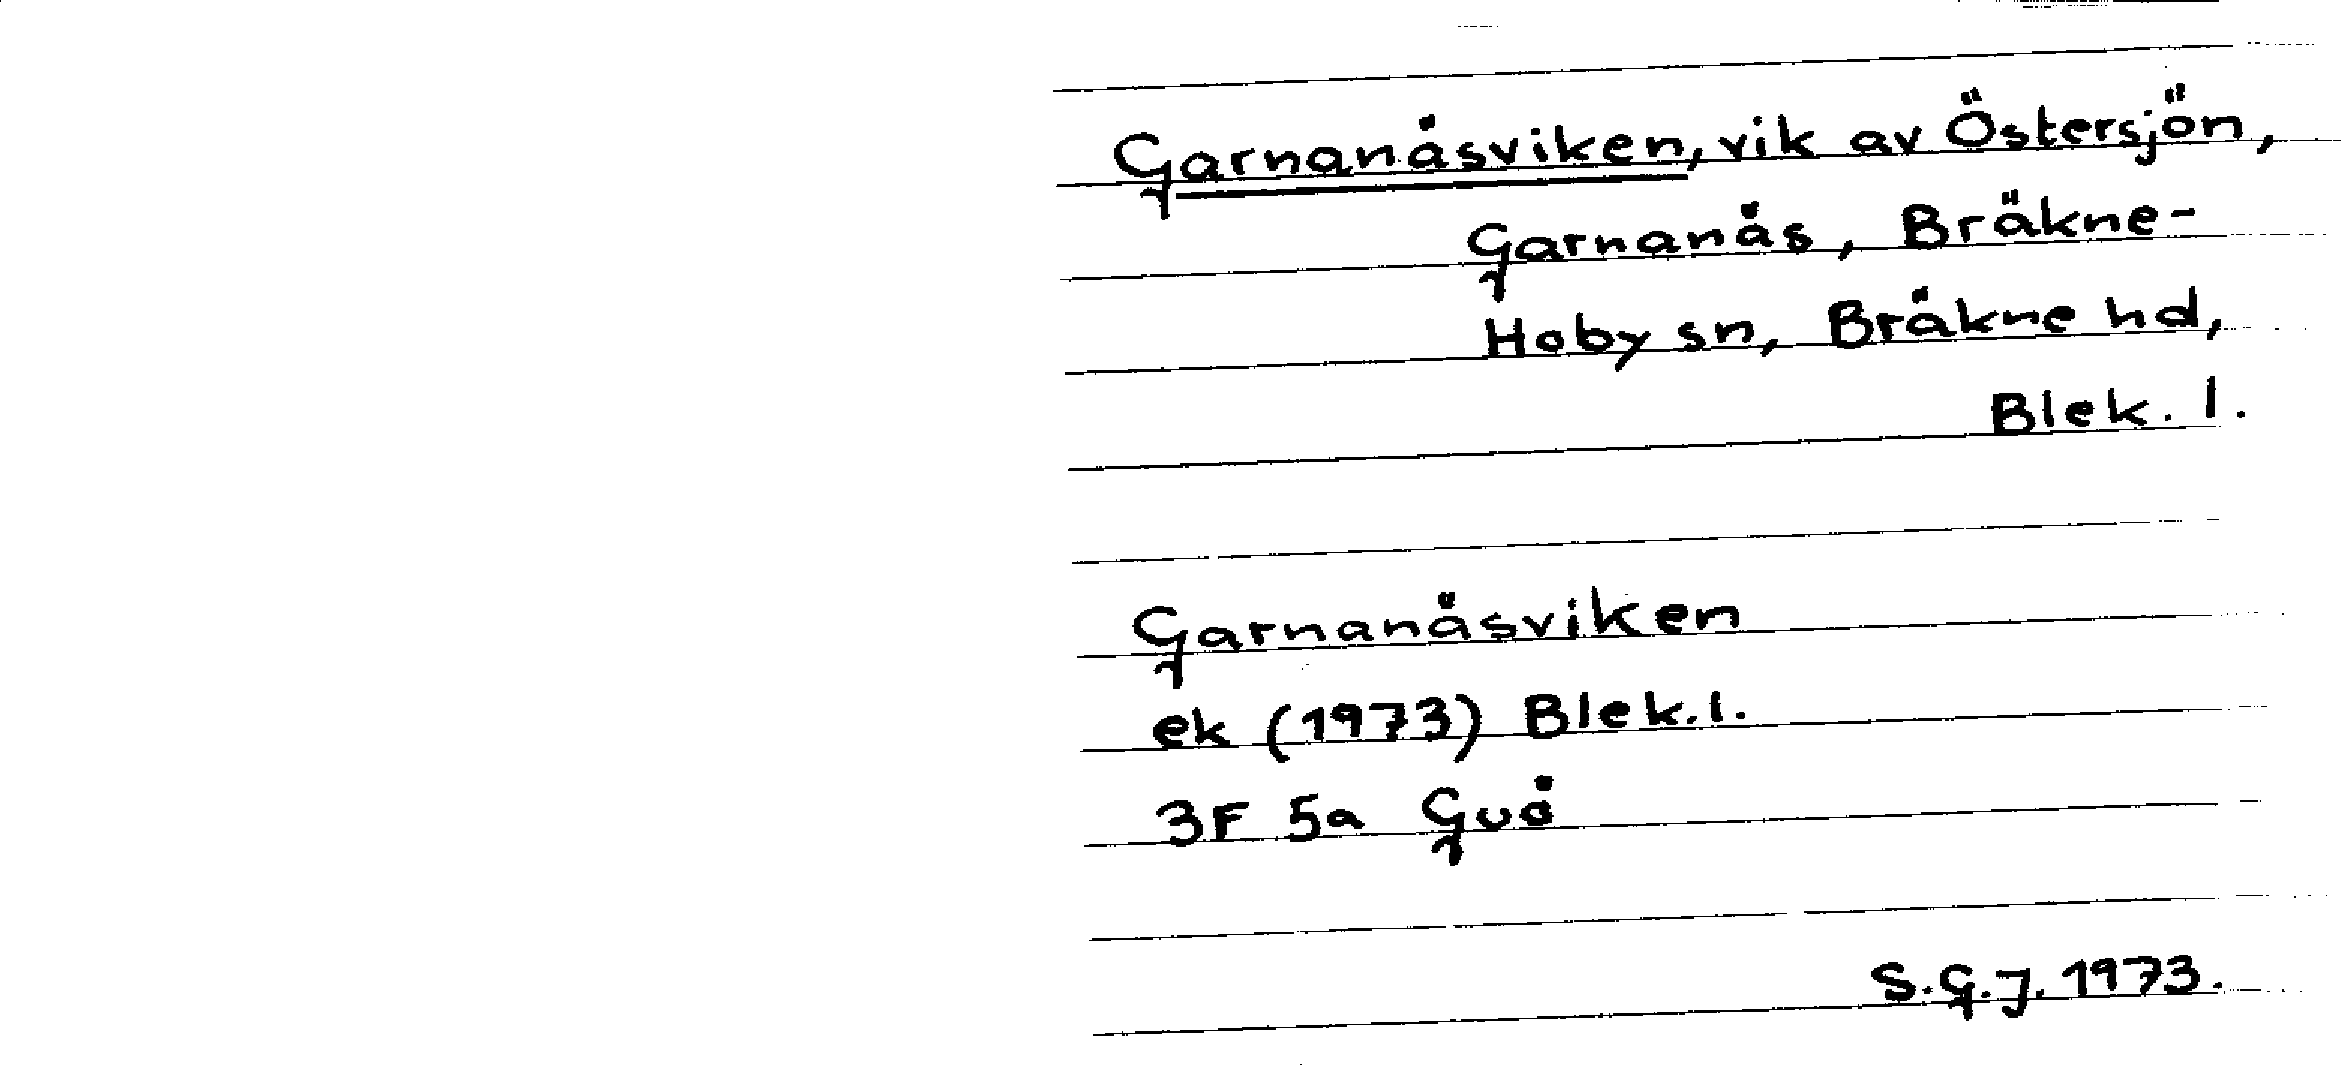 Garnanäsviken, vik av Östersjön,
Garnanäs, Bräkne-
Hoby sn, Bräkne hd,
Blek. l.
Garnanäsviken
ek (1973) Blek. l.
3F 5a Guö
S.G.J. 1973.